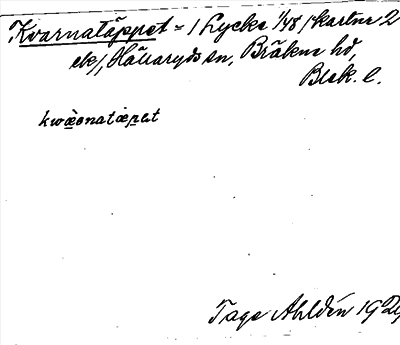 Kvarnatäppet = 1 Lycke 1/48 (kartnr 2
ek), Hällaryds sn, Bräkne hd,
Blek. l.
kwæ̀onatæpet
Tage Ahldén 192